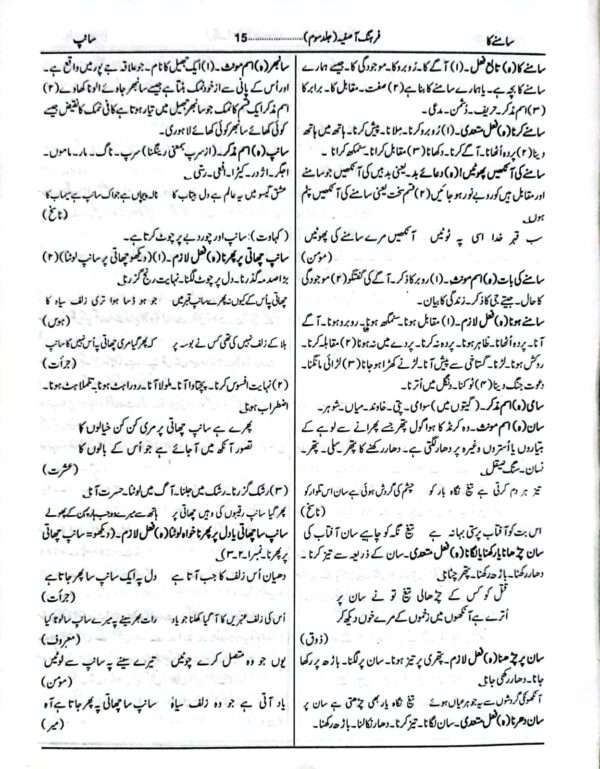 سامنے کا
فرہنگ آصفیہ (جلد سوم) ............ 15
سانپ
سامنے کا (ہ) تابع فعل۔ (۱) آگے کا۔ روبرو کا۔ موجودگی کا۔ جیسے ہمارے
سامنے کا بچہ ہے۔ یا ہمارے سامنے کا بنا ہے (۲) صفت۔ مقابل کا۔ برابر کا
(۳) اسم مذکر۔ حریف۔ دشمن۔ مدعی۔
سامنے کرنا (ہ) فعل متعدی۔ (۱) روبرو کرنا۔ ملانا۔ پیش کرنا۔ ہاتھ میں ہاتھ
دینا (۲) پردہ اُٹھانا۔ آگے کرنا۔ دکھانا (۳) مقابل کرانا۔ سنمکھ کرانا۔
سامنے کی آنکھیں پھوٹیں! (ہ) دعائے بد۔ یعنی بد ہیں کی آنکھیں جو سامنے
اور مقابل ہیں کور و بے نور ہو جائیں (۲) قسم سخت یعنی سامنے کی آنکھیں پٹم
ہوں۔
سب قہر خدا اسی پہ ٹوٹیں آنکھیں مرے سامنے کی پھوٹیں
(مومن)
سامنے کی بات (ہ) اسم مونث۔ (۱) روبرو کا ذکر۔ آگے کی گفتگو (۲) موجودگی
کا حال۔ جیتے جی کا ذکر۔ زندگی کا بیان۔
سامنے ہونا (ہ) فعل لازم۔ (۱) مقابل ہونا۔ سنمکھ ہونا۔ روبرو ہونا۔ آگے
آنا۔ پردہ اُٹھانا۔ ظاہر ہونا۔ پردہ نہ کرنا۔ پردے میں نہ ہونا (۲) مقابلہ کرنا۔
روکش ہونا۔ لڑنا۔ گستاخی سے پیش آنا۔ لڑنے کو کھڑا ہو جانا (۳) لڑائی مانگنا۔
دعوت جنگ دینا (۴) ٹوکنا۔ دنگل میں اُترنا۔
سامی (ہ) اسم مذکر۔ (گیتوں میں) سوامی۔ پتی۔ خاوند۔ میاں۔ شوہر۔
سان (ہ) اسم مذکر۔ وہ کرنڈ کا ہوا گول پتھر جسے پھرانے سے لوہے کے
ہتیاروں یا اُستروں وغیرہ پر دھار لگتی ہے۔ دھار رکھنے کا پتھر۔ سلی۔ پتھر۔
فسان۔ سنگ صیقل۔
تیز ہر دم کرتی ہے تیغ نگاہ یار کو چشم کی گردش ہوئی ہے سان اس تلوار کو
(ناسخ)
اس بت کو آفتاب پرستی بہانہ ہے تیغ نگہ کو چاہیے سان آفتاب کی
سان چڑھانا یا رکھنا یا لگانا (ہ) فعل متعدی۔ سان کے ذریعہ سے تیز کرنا۔
دھار رکھنا۔ باڑھ رکھنا۔ پتھر چٹانا۔
قتل کو کس کے چڑھائی تیغ تو نے سان پر
اُترے ہے آنکھوں میں زخموں کے مرے خوں دیکھ کر
(ذوق)
سان پر چڑھنا (ہ) فعل لازم۔ پتھری پر تیز ہونا۔ سان پر لگنا۔ باڑھ پر رکھا
جانا۔ دھار رکھی جانا۔
آنکھوں کی گردشوں سے یہ جوہر عیاں ہوئے تیغ نگاہ یار بھی چڑھتی ہے سان پر
سان دھرنا (ہ) فعل متعدی۔ سان لگانا۔ تیز کرنا۔ دھار نکالنا۔ باڑھ رکھنا۔
سانبھر (ہ) اسم مونث۔ (۱) ایک جھیل کا نام۔ جو علاقہ جے پور میں واقع ہے۔
اور اُس کے پانی سے از خود نمک بنتا ہے جیسے سانبھر جائے الونا کھاوے (۲)
اسم مذکر ایک قسم کا نمک جو سانبھر جھیل میں تیار ہوتا ہے کانی نمک کا نقیض جیسے
کوئی کھائے سانبھر کوئی کھائے لاہوری۔
سانپ (ہ) اسم مذکر۔ (از سرپ بمعنی رینگنا) سرپ۔ ناگ۔ مار۔ ماموں۔
اجگر۔ اژدر۔ کیڑا۔ افعی۔ رسی۔
عشق گیسو میں یہ عالم ہے دل بیتاب کا ناچتا ہے جو اک سانپ ہے سیماب کا
(ناسخ)
(کہاوت): سانپ اور چور دبے پر چوٹ کرتا ہے۔
سانپ چھاتی پر پھرنا (ہ) فعل لازم۔ (۱) (دیکھو چھاتی پر سانپ لوٹنا) (۲)
بڑا صدمہ گذرنا۔ دل پر چوٹ لگنا۔ نہایت رنج گزرنا۔
چھاتی پہ اُس کے کیوں نہ پھرے سانپ قبر میں جو ہو ڈسا ہوا تری زلف سیاہ کا
(ہوس)
بلا کے زلف نہیں کی تھی کس نے بو سہ پر کہ پھر گیا مری چھاتی پہ اُس نہیں کا سانپ
(جرأت)
(۲) نہایت افسوس کرنا۔ پچتاوا آنا۔ ملولا آنا۔ رورا ہٹ ہونا۔ تلملاہٹ ہونا۔
اضطراب ہونا۔
پھرے ہے سانپ چھاتی پر مری کن کن خیالوں کا
تصور آنکھ میں آ جائے ہے جو اُس کے بالوں کا
(عشرت)
(۳) رشک گزرنا۔ رشک میں جلنا۔ آگ میں لوٹنا۔ حسرت آنا۔
پھر گیا سانپ رقیبوں کی وہیں چھاتی پر ہاتھ سے میرے وہ جب ہار پہن کے پھولے
سانپ سا چھاتی یا دل پر پھرنا خواہ لوٹنا (ہ) فعل لازم۔ (دیکھو سانپ
چھاتی پر پھرنا۔ نمبر ۱۔ ۲۔ ۳)
دھیان اُس زلف کا جب آتا ہے دل پہ ایک سانپ سا پھر جاتا ہے
(جرأت)
اُس کی زلف عنبریں کا آ گیا کھلنا جو یاد رات بھر سینے پہ میرے سانپ سا لوٹا کیا
(معروف)
یوں جو وہ متصل کرے چوٹیں تیرے سینے پہ سانپ سے لوٹیں
(مومن)
یاد آتی ہے جو وہ زلف سیاہ سانپ سا چھاتی پہ پھر جاتا ہے آہ
(میر)